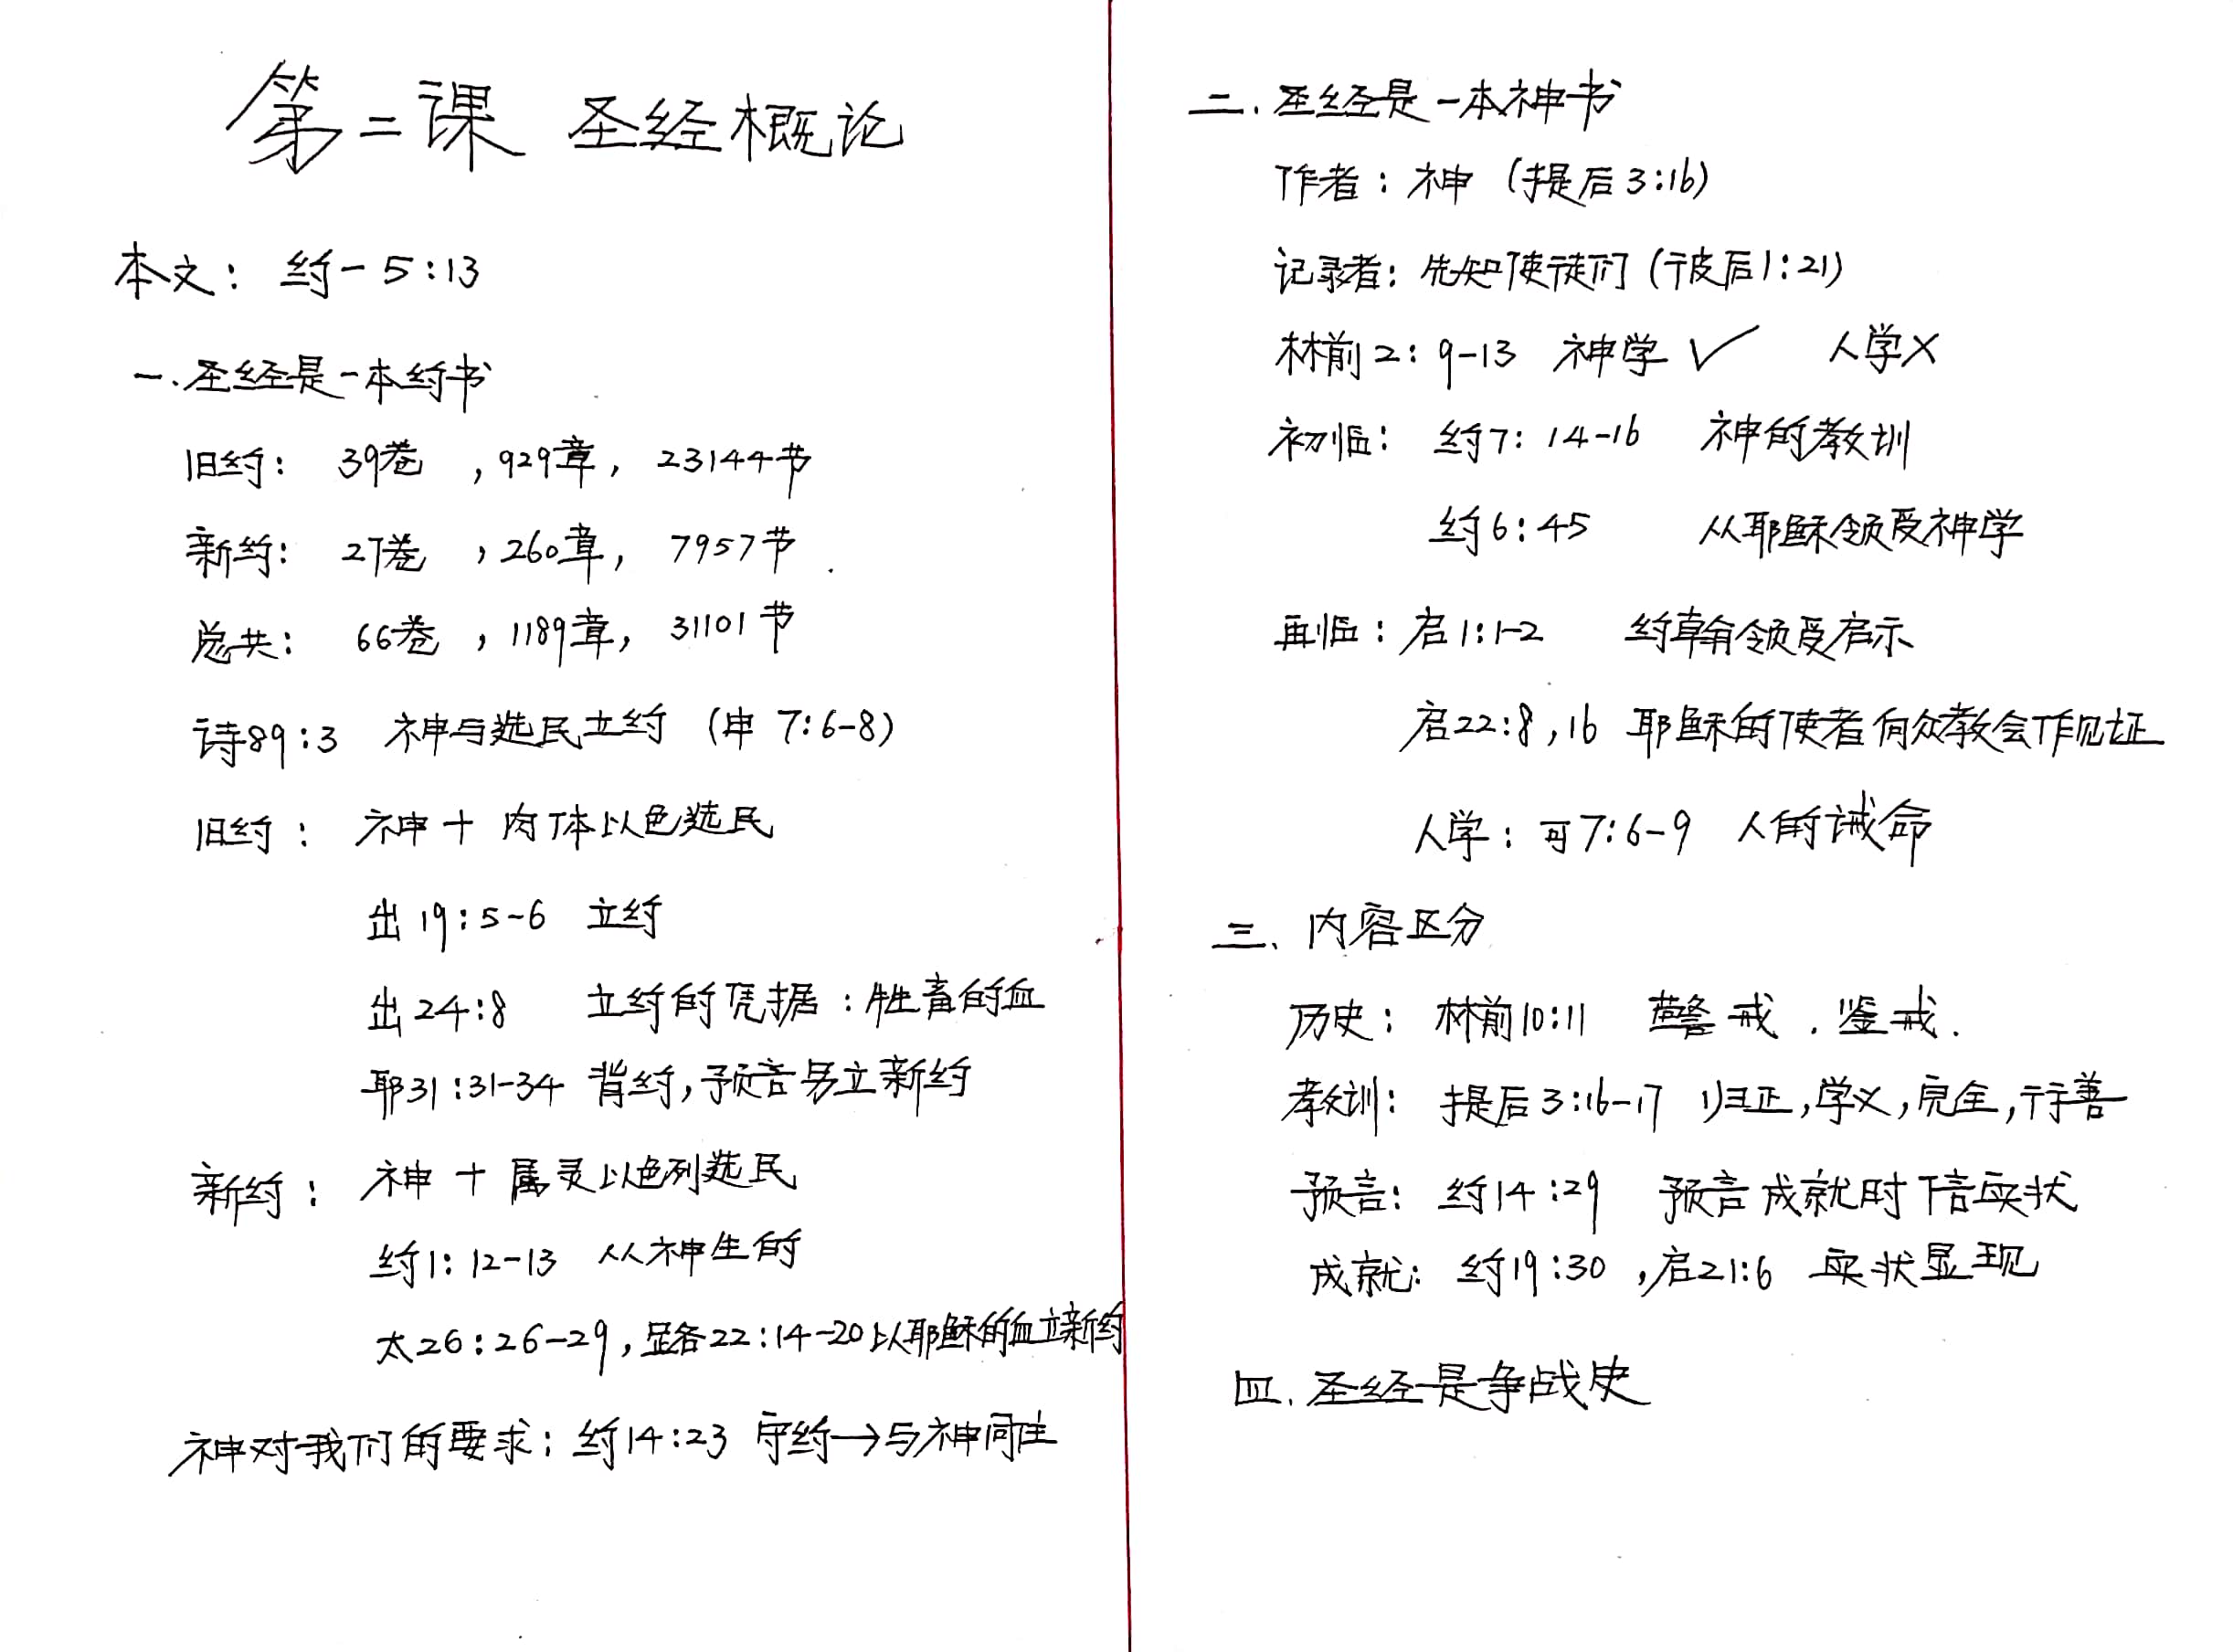 第二课 圣经概论
本文： 约一 5:13
一.圣经是一本约书
旧约： 39卷 ，929章， 23144节
新约： 27卷 ，260章， 7957节
总共： 66卷 ，1189章， 31101节
诗89:3 神与选民立约 (申 7:6-8)
旧约： 神 + 肉体以色选民
出 19:5-6 立约
出 24:8 立约的凭据：牲畜的血
耶31:31-34 背约，预言另立新约
新约： 神 + 属灵以色列选民
约1: 12-13 从神生的
太26:26-29，路22:14-20以耶稣的血立新约
神对我们的要求：约14:23 守约→与神同住
二.圣经是一本神书
作者：神 (提后3:16)
记录者：先知使徒们 (彼后1:21)
林前2: 9-13 神学 ✓ 人学×
初临： 约7: 14-16 神的教训
约6:45 从耶稣领受神学
再临：启1:1-2 约翰领受启示
启22:8,16 耶稣的使者向众教会作见证
人学：可7:6-9 人的诫命
三、内容区分
历史： 林前10:11 警戒．鉴戒．
教训： 提后3:16-17 归正，学义，完全，行善
预言： 约14:29 预言成就时信实状
成就： 约19:30 ，启21:6 实状显现
四.圣经是争战史